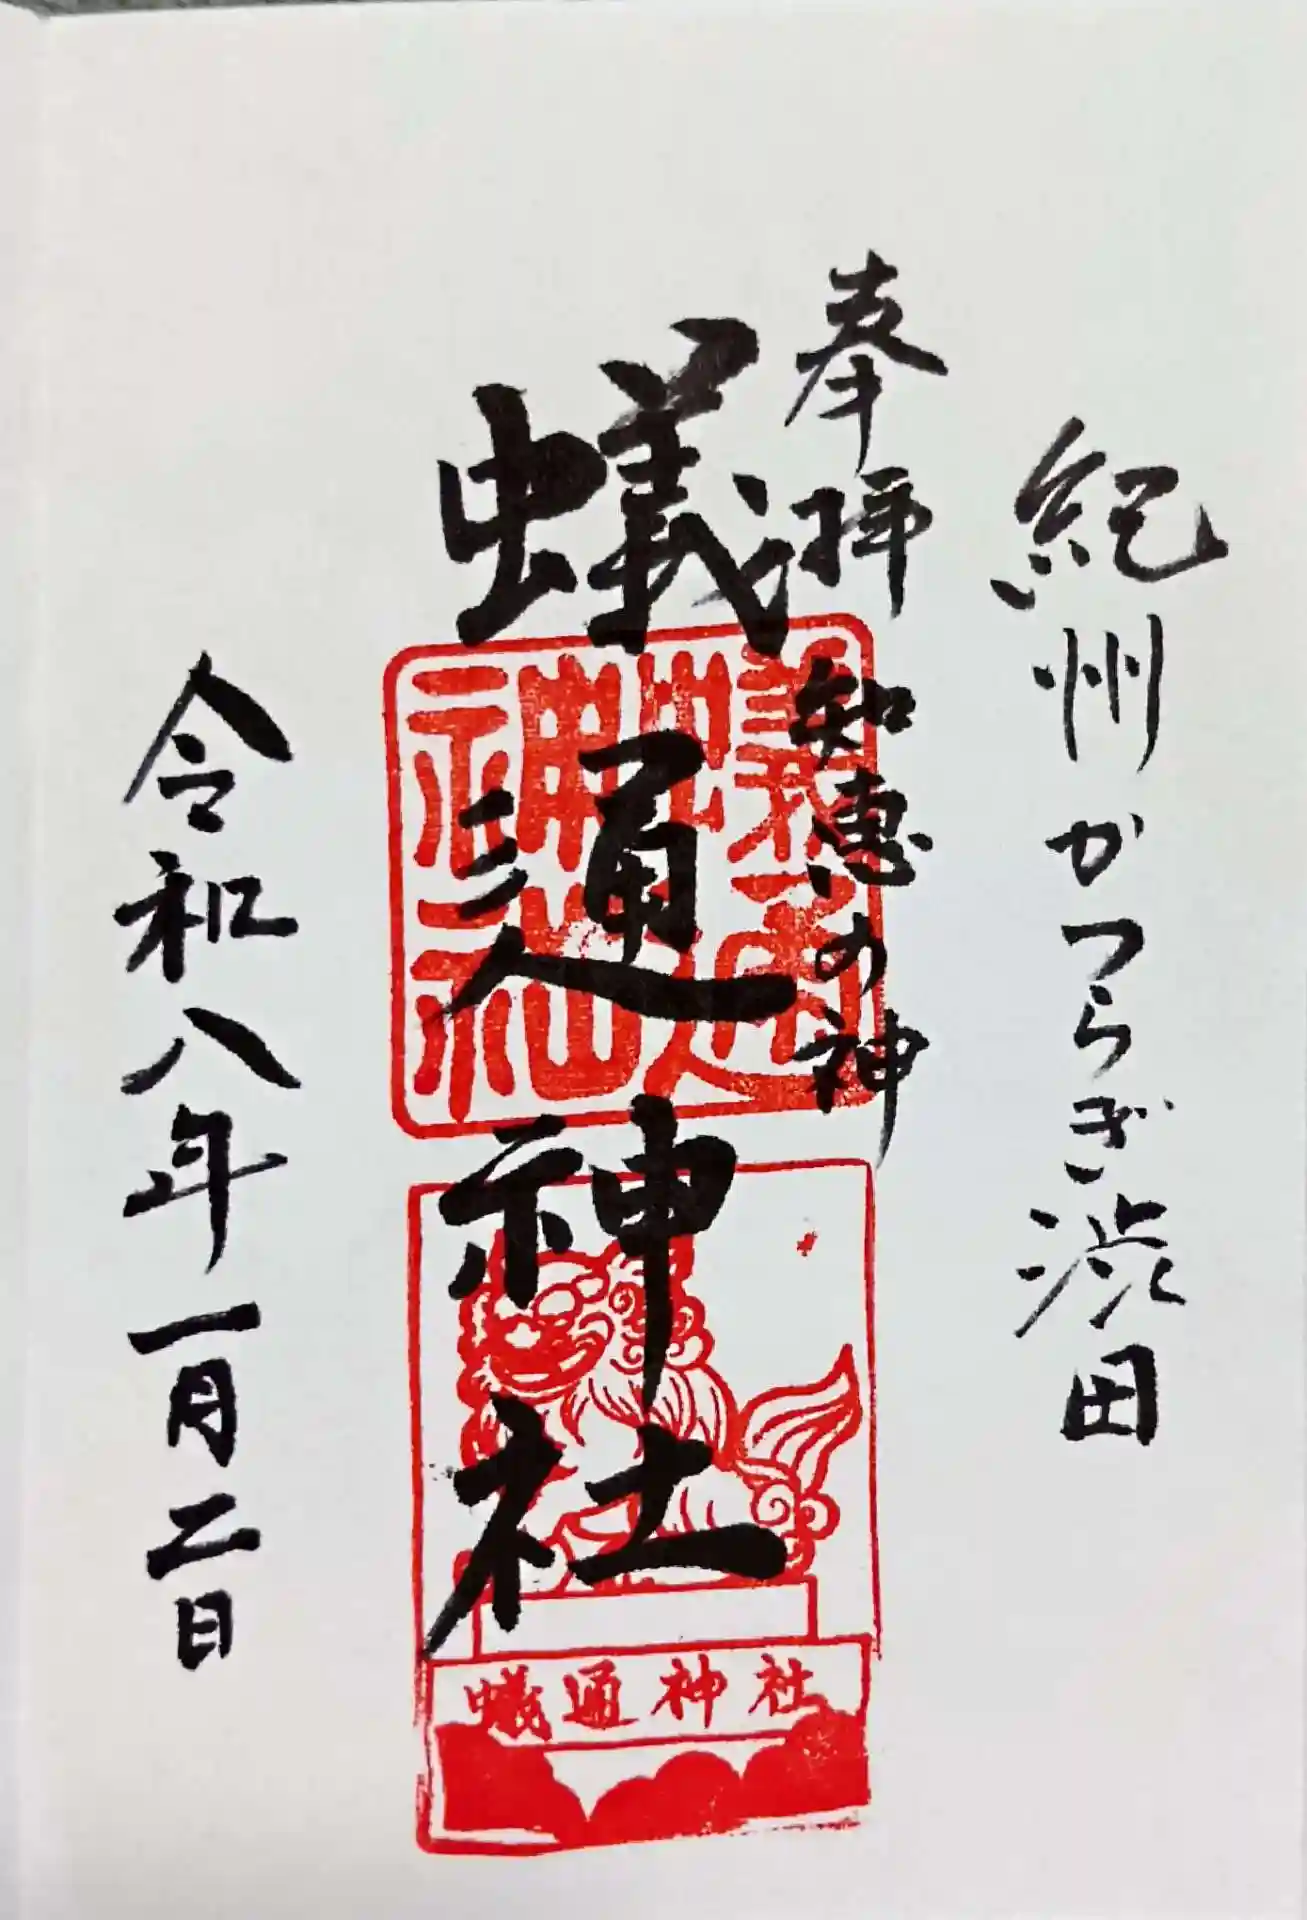 紀州かつらぎ渋田
奉拝 知恵の神
蟻通神社
令和八年一月二日
蟻通神社